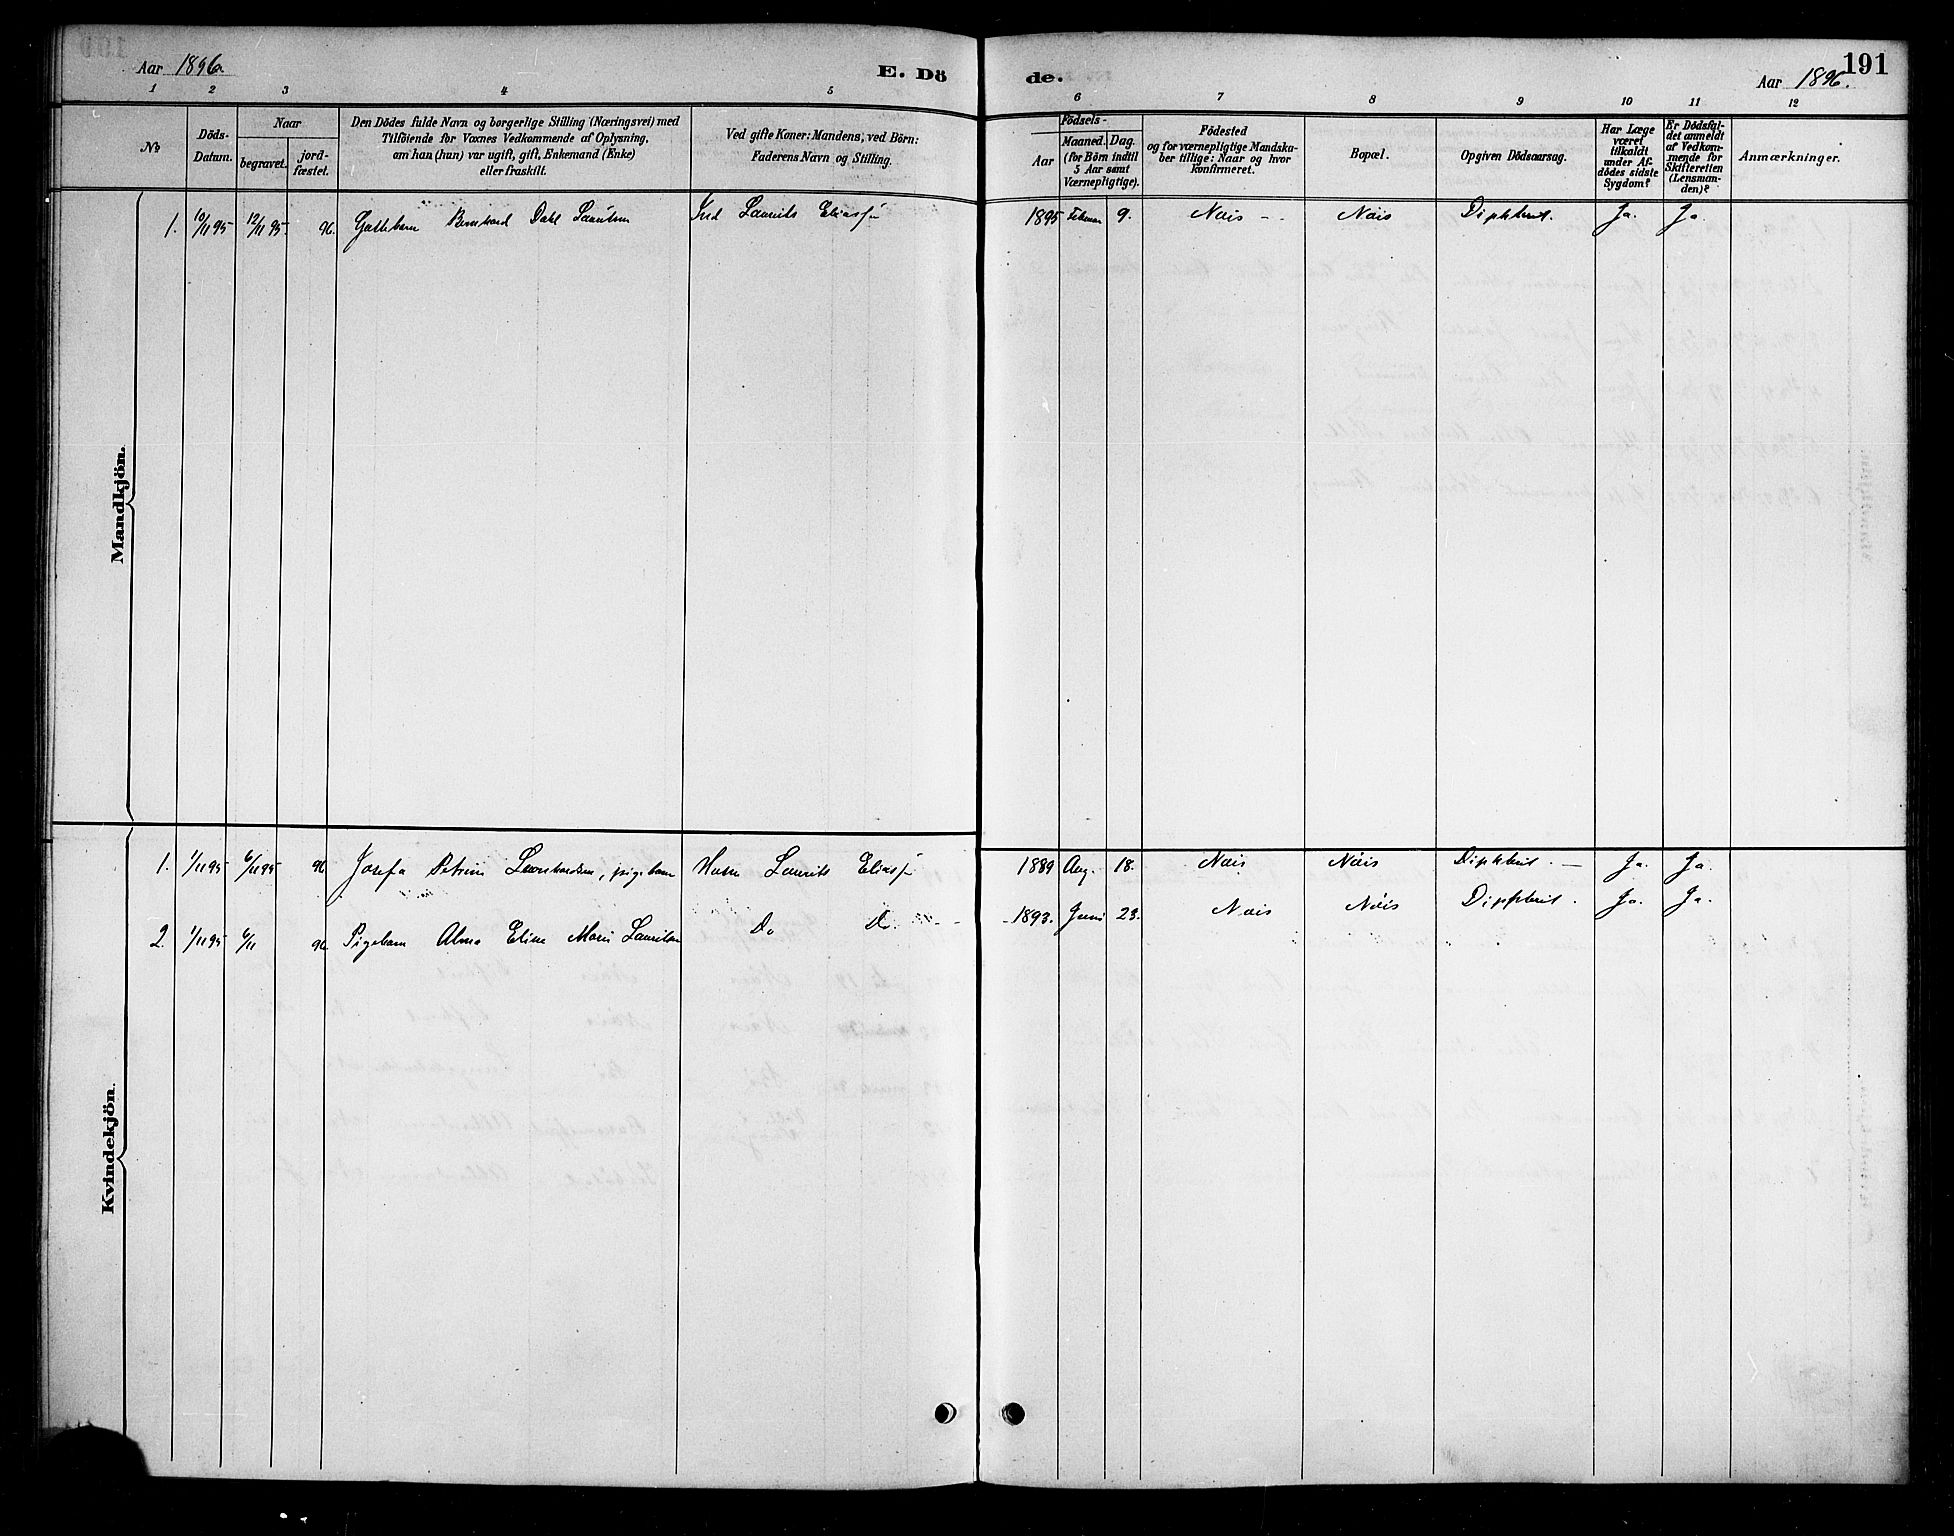 Aar 1896.
E. Dö
de.
Aar 1896.
191
1 2 3 4 5
6 7 8 9 10 11 12
№
Döds-
Datum.
Naar
begravet.
jord-
fæstet.
Den Dödes fulde Navn og borgerlige Stilling (Næringsvei) med
Tilföiende for Voxnes Vedkommende af Oplysning,
om han (hun) var ugift, gift, Enkemand (Enke)
eller fraskilt.
Ved gifte Koner: Mandens, ved Börn:
Faderens Navn og Stilling.
Födsels-
Aar
Maaned. Dag.
(for Börn indtil
5 Aar samt
Værnepligtige).
Födested
og for værnepligtige Mandska-
ber tillige: Naar og hvor
konfirmeret.
Bopæl.
Opgiven Dödsaarsag.
Har Læge
været
tilkaldt
under Af-
dödes sidste
Sygdom?
Er Dödsfal-
det anmeldt
af Vedkom-
mende for
Skifteretten
(Lensman-
den)?
Anmærkninger.
Mandkjön.
1. 10/11 95 12/11 95. 96. Guttebarn Bernhard Dahl Lauritsen Ind Laurits Eliass 1895 Februar 9. Nois - Nois Diphterit. Ja. Ja.
Kvindekjön.
1. 1/11 95 6/11 95 96 Josefa Petrine Leonhardine, pigebarn Husm Laurits Eliass 1889 Aug. 18. Nois Nöis Diphterit. — Ja. Ja.
2. 1/11 95 6/11 96. Pigebarn Alma Eline Marie Lauritsen Do Do. 1893. Juni 23. Nois Nöis Diphterit. Ja. Ja.